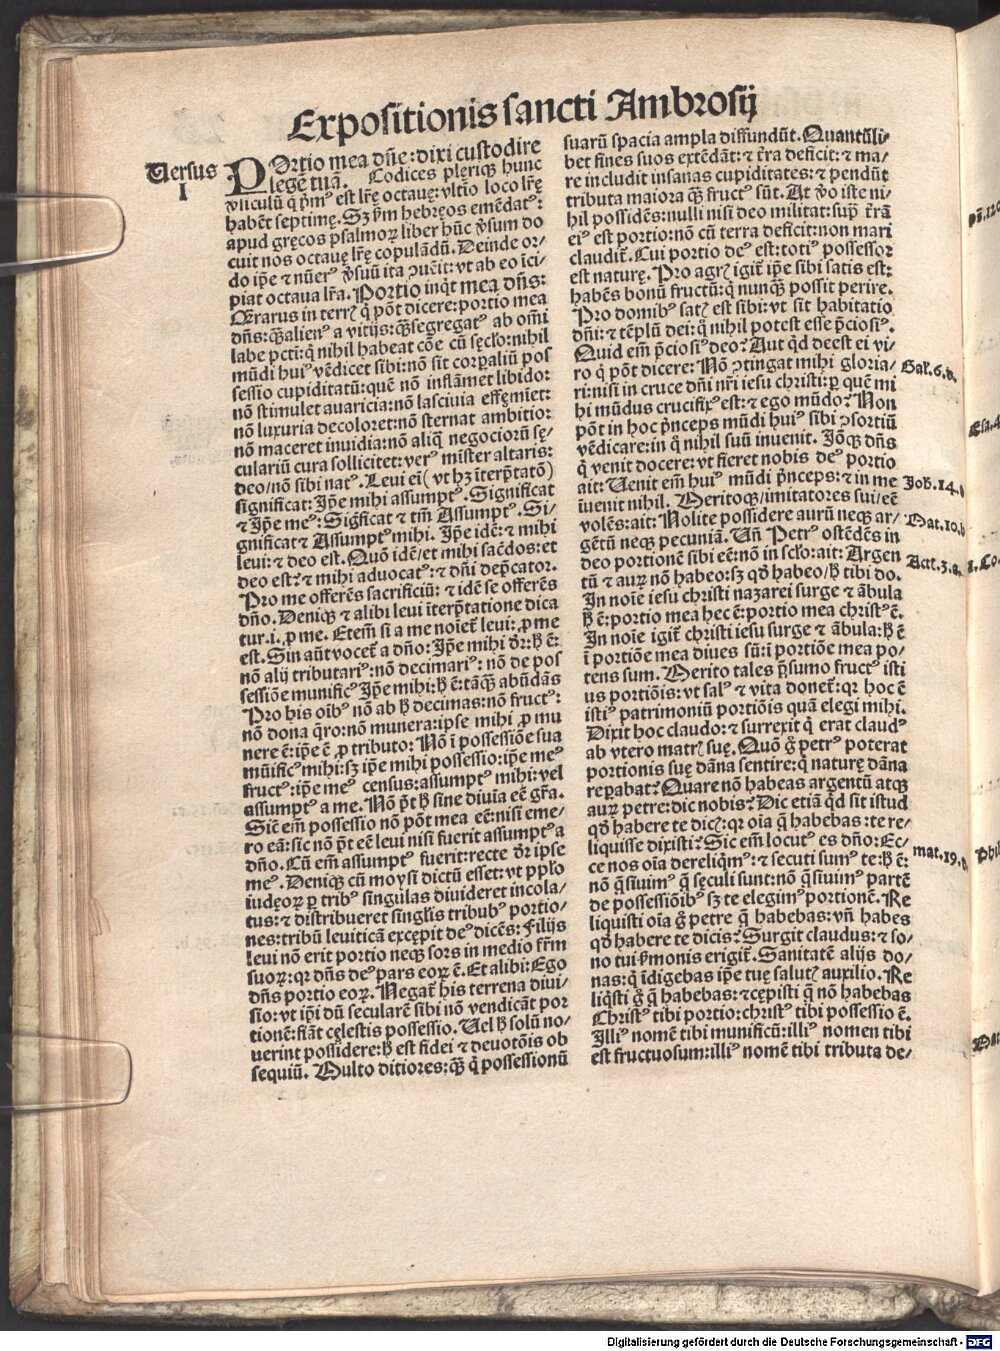 Expositionis sancti Ambrosij
Versus
I
POrtio mea dñe: dixi custodire
legē tuā. Codices pleriqꝫ hunc
v̄siculū q̄ pͥmꝰ est lr̄e octauę: vltīo loco lr̄ę
habēt septimę. Sꝫ pͥm hebręos emēdatꝰ:
apud gręcos psalmoꝝ liber hūc v̄sum do
cuit nos octauę lr̄ę copulādū. Deinde or-
do ip̄e ⁊ nūerꝰ v̄suū ita ꝯuēit: vt ab eo īci-
piat octaua lr̄a. Portio inqͥt mea dn̄s:
Q̄rarus in terrꝭ q̄ pōt dicere: portio mea
dn̄s: qͣꝫ alienꝰ a vitijs: qͣꝫ segregatꝰ ab om̄i
labe pcti: q̄ nihil habeat cōe cū sęclo: nihil
mūdi huiꝰ vēdicet sibi: nō sit corꝑaliū pos
sessio cupiditatū: quē nō inflāmet libido:
nō stimulet auaricia: nō lasciuia effęmiet:
nō luxuria decoloret: nō sternat ambitio:
nō maceret inuidia: nō aliq̄ negociorū sę-
culariū cura sollicitet: verꝰ mīster altaris:
deo/ nō sibi natꝰ. Leui ei (vt hꝫ īterp̄tatō)
significat: Ip̄e mihi assumptꝰ. Significat
⁊ Ip̄e meꝰ: Sigficat ⁊ tm̄ Assumptꝰ. Si-
gnificat ⁊ Assumptꝰ mihi. Ip̄e idē: ⁊ mihi
leui: ⁊ deo est. Quō idē/ et mihi sac̄dos: et
deo est? ⁊ mihi aduocatꝰ: ⁊ dn̄i dep̄cator.
Pro me offerēs sacrificiū: ⁊ idē se offerēs
dn̄o. Deniqꝫ ⁊ alibi leui īterp̄tatione dica
tur .i. ꝓ me. Etem̄ si a me noīet̄ leui: ꝓ me
est. Sin aūt vocet̄ a dn̄o: Ip̄e mihi dr̄: ꝫ ē
nō alij tributariꝰ: nō decimariꝰ: nō de pos
sessiōe munificꝰ Ip̄e mihi: ꝫ ē: tāqͣꝫ abūdās
Pro his oībꝰ nō ab ꝫ decimas: nō fructꝰ:
nō dona q̄ro: nō munera: ipse mihi ꝓ mu
nere ē: ip̄e ē ꝓ tributo: Nō ī possessiōe sua
mūificꝰ mihi: sꝫ ip̄e mihi possessio: ip̄e meꝰ
fructꝰ: ip̄e meꝰ census: assumptꝰ mihi: vel
assumptꝰ a me. Nō p̄t ꝫ sine diuīa eē gr̄a.
Sic em̄ possessio nō pōt mea eē: nisi eme-
ro eā: sic nō p̄t eē leui nisi fuerit assumptꝰ a
dn̄o. Cū em̄ assumptꝰ fuerit: recte dr̄ ipse
meꝰ. Deniqꝫ cū moysi dictū esset: vt pplo
iudęoꝝ ꝑ tribꝰ singulas diuideret incola-
tus: ⁊ distribueret singlis tribubꝰ portio-
nes: tribū leuiticā excępit deꝰ dicēs: Filijs
leui nō erit portio neqꝫ sors in medio fr̄m
suoꝝ: qr dn̄s deꝰ pars eoꝝ ē. Et alibi: Ego
dn̄s portio eoꝝ. Negat̄ his terrena diui-
sio: vt ip̄i dū secularē sibi nō vendicāt por
tionē: fiāt cęlestis possessio. Vel ꝫ solū no-
uerint possidere: ꝫ est fidei ⁊ deuotōis ob
sequiū. Multo ditiores: qͣꝫ q̄ possessionū
suarū spacia ampla diffundūt. Quantūli-
bet fines suos extēdāt: ⁊ t̄ra deficit: ⁊ ma-
re includit insanas cupiditates: ⁊ pendūt
tributa maiora qͣꝫ fructꝰ sūt. At v̄o iste ni-
hil possidēs: nulli nisi deo militat: sup̄ t̄rā
eiꝰ est portio: nō cū terra deficit: non mari
claudit̄. Cui portio deꝰ est: totiꝰ possessor
est naturę. Pro agrꝭ igit̄ ip̄e sibi satis est:
habēs bonū fructū: q̄ nunqͣꝫ possit perire.
Pro domibꝰ satꝭ est sibi: vt sit habitatio
dn̄i: ⁊ tēplū dei: q̊ nihil potest esse p̄ciosiꝰ.
Quid em̄ p̄ciosiꝰ deo? Aut qͥd deest ei vi-
ro q̄ pōt dicere: Nō ꝯtingat mihi gloria-
ri: nisi in cruce dn̄i nr̄i iesu christi: ꝑ quē mi
hi mūdus crucifixꝰ est: ⁊ ego mūdo? Non
pōt in hoc p̄nceps mūdi huiꝰ sibi ꝯsortiū
vēdicare: in q̄ nihil suū inuenit. Iō qͣꝫ dn̄s
q̄ venit docere: vt fieret nobis deꝰ portio
ait: Venit em̄ huiꝰ mūdi p̄nceps: ⁊ in me
īuenit nihil. Meritoqꝫ/ imitatores sui/ eē
volēs: ait: Nolite possidere aurū neqꝫ ar-
gētū neqꝫ pecuniā. Vn̄ Petrꝰ ostēdēs in
deo portionē sibi eē: nō in sclo: ait: Argen
tū ⁊ auꝝ nō habeo: sꝫ qd̄ habeo/ ꝫ tibi do.
In noīe iesu christi nazarei surge ⁊ ābula
ꝫ ē: portio mea hec ē: portio mea christꝰ ē.
In noīe igit̄ christi iesu surge ⁊ ābula: ꝫ ē
ī portiōe mea diues sū: ī portiōe mea po-
tens sum. Merito tales p̄sumo fructꝰ isti
us portiōis: vt salꝰ ⁊ vita donet̄: qr hoc ē
istiꝰ patrimoniū portiōis quā elegi mihi.
Dixit hoc claudo: ⁊ surrexit q̄ erat claudꝰ
ab vtero matrꝭ suę. Quō g̊ petrꝰ poterat
portionis suę dāna sentire: q̄ naturę dāna
reꝑabat? Quare nō habeas argentū atqꝫ
auꝝ petre: dic nobis? Dic etiā qͥd sit istud
qd̄ habere te dicꝭ: qr oīa q̄ habebas: te re-
liquisse dixisti? Sic em̄ locutꝰ es dn̄o: Ec-
ce nos oīa dereliqͥmꝰ: ⁊ secuti sumꝰ te: ꝫ ē:
nō q̄siuimꝰ q̄ sęculi sunt: nō q̄siuimꝰ partē
de possessiōibꝰ sꝫ te elegimꝰ portionē. Re
liquisti oīa g̊ petre q̄ habebas: vn̄ habes
qd̄ habere te dicis? Surgit claudus: ⁊ so-
no tui s̄monis erigit̄. Sanitatē alijs do-
nas: q̄ īdigebas ip̄e tuę salutꝭ auxilio. Re
liqͥsti g̊ q̄ habebas: ⁊ cępisti q̄ nō habebas
Christꝰ tibi portio: christꝰ tibi possessio ē.
Illiꝰ nomē tibi munificū: illiꝰ nomen tibi
est fructuosum: illiꝰ nomē tibi tributa de-
Gal. 6. d.
Joh. 14.
Mat. 10. b
Act. 3. a.
mat. 19. d
Digitalisierung gefördert durch die Deutsche Forschungsgemeinschaft - DFG